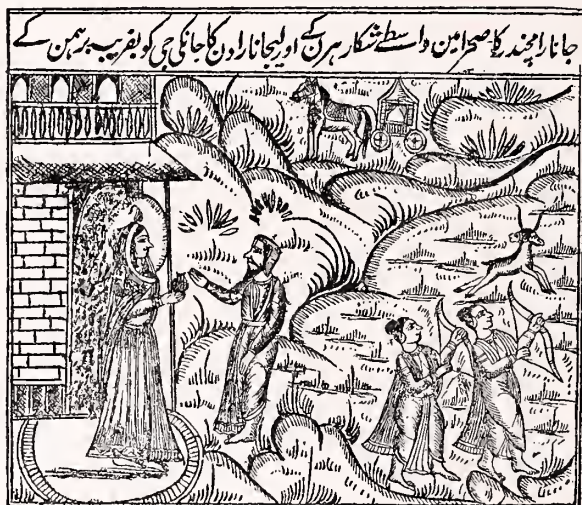 جانا رامچندر کا صحرا مین واسطے شکار ہرن کے اولیجانا راون کا جانکی جی کو بفریب برہمن کے